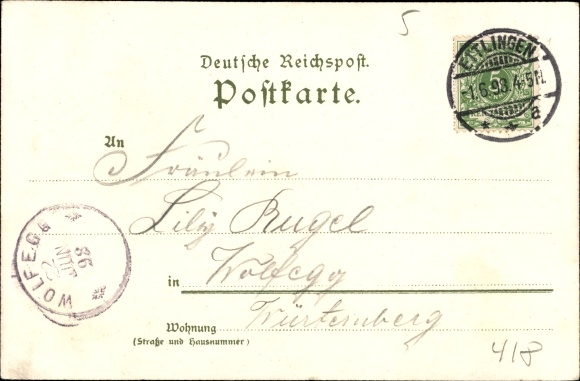 5
Deutsche Reichspost.
Postkarte.
ETTLINGEN
-1.6.98.4-5N.
a
5
An
Fräulein
Lily Rugel
in Wolfegg
Württemberg
Wohnung
(Straße und Hausnummer)
WOLFEGG
2
JUN
98
418